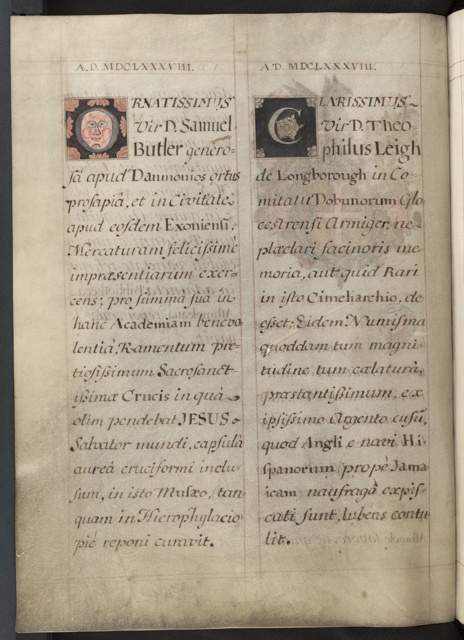 A.D. MDCLXXXVIII.
ORNATISSIMUS
Vir D. Samuel
Butler genero-
sâ apud Danmonios ortus
prosapiâ, et in Civitate
apud eosdem Exoniensi,
Mercaturam felicissime
impræsentiarum exer-
cens; pro summâ suâ in
hanc Academiam benevo
lentiâ, Ramentum pre-
tiosissimum Sacrosanct-
issimæ Crucis in quâ
olim pendebat JESUS
Salvator mundi, capsulâ
aureâ cruciformi inclu-
sum, in isto Musæo, tan
quam in Hierophylacio
piè reponi curavit.
A.D. MDCLXXXVIII.
CLARISSIMUS
Vir D. Theo
philus Leigh
de Longborough in Co-
mitatu Dobunorum Glo
cestrensi Armiger, ne
præclari facinoris me
moria, aut quid Rari
in isto Cimeliarchio, de
esset; Eidem Numisma
quoddam tum magni
tudine tum cælaturâ,
præstantissimum, ex
ipsissimo Argento cusũ,
quod Angli e navi Hi
spanorum (propè Jama
icam naufragâ) expis-
cati sunt, lubens contu
lit.